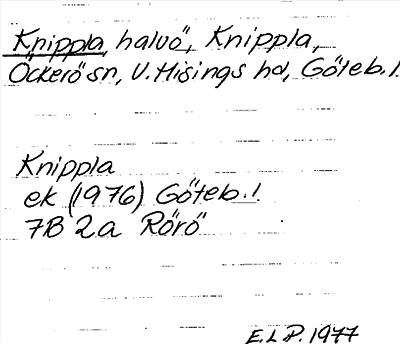 Knippla, halvö, Knippla,
Öckerö sn, V. Hisings hd, Göteb. l.
Knippla
ek (1976) Göteb. l.
7B 2a Rörö
E.L.P. 1977